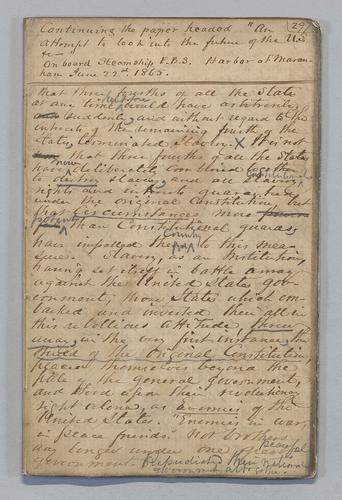 29
Continuing the paper headed "An
Attempt to look into the future of the U.S.
&c —
On board Steamship E.B.S. Harbor of Maran-
ham June 22d. 1865.
that three fourths of all the States
at any time heretofore would have arbitrarily
suddenly, and without regard to the
interests of the remaining fourth of the
States terminated Slavery. X It is not
that three fourths of all the States
have now deliberately combined together
to destroy Slavery, and all Slavery
rights and interests guaranteed
under the original Constitution, but
that circumstances more
than Constitutional guards
have impelled the County to this mea-
sure. Slavery, as an Institution,
having set itself in battle array
against the United States gov-
ernment, those States which em-
barked and invested their all in
this rebellious attitude, threw
away, in the very first instance, the
shield of the original Constitution,
placed themselves beyond the
pale of the general government,
and stood upon their revolutionary
right alone, as enemies of the
United States. "Enemies in war,
in peace friends." Not brothers
any longer under one peaceful
government. Repudiated their national
government altogether.